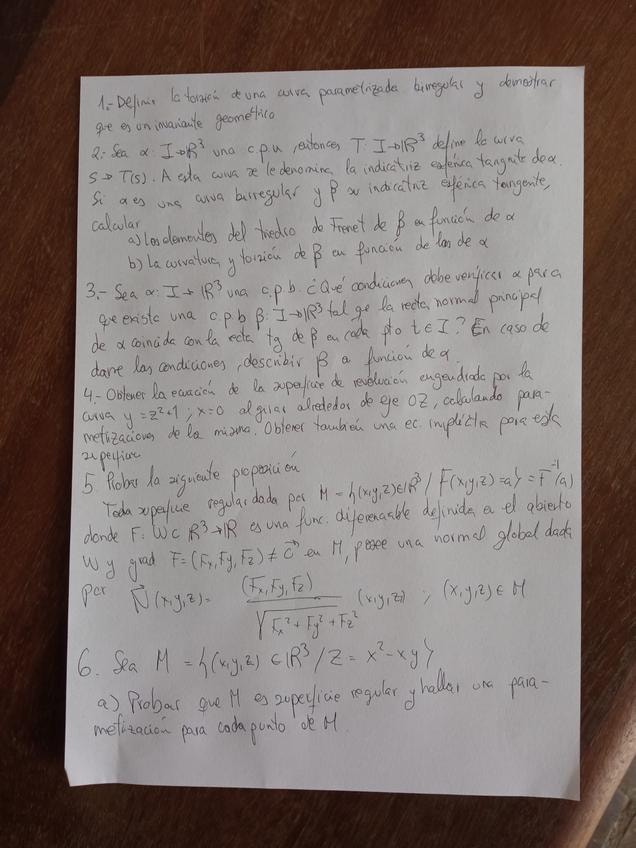 1.- Definir la torsión de una curva parametrizada birregular y demostrar
que es un invariante geométrico
2.- Sea α: I→R³ una c.p.u, entonces T: I→R³ define la curva
s→T(s). A esta curva se le denomina la indicatriz esférica tangente de α.
Si α es una curva birregular y β su indicatriz esférica tangente,
calcular
a) Los elementos del triedro de Frenet de β en función de α
b) La curvatura y torsión de β en función de las de α
3.- Sea α: I→R³ una c.p.b. ¿Qué condiciones debe verificar α para
que exista una c.p.b β: I→R³ tal qe la recta normal principal
de α coincida con la recta tg de β en cada pto t∈I? En caso de
darse las condiciones, describir β en función de α.
4.- Obtener la ecuación de la superficie de revolución engendrada por la
curva y=z²+1; x=0 al girar alrededor de eje OZ, calculando para-
metrizaciones de la misma. Obtener también una ec. implícita para esta
superficie
5 Probar la siguiente proposición
Toda superficie regular dada por M = {(x,y,z)∈R³ / F(x,y,z)=a} = F⁻¹(a)
donde F: W⊂R³→R es una func. diferenciable definida en el abierto
W y grad F=(Fx,Fy,Fz)≠0⃗ en M, posee una normal global dada
por N⃗(x,y,z)= (Fx,Fy,Fz) / √(Fx²+Fy²+Fz²) (x,y,z) ; (x,y,z)∈M
6. Sea M = {(x,y,z)∈R³ / z=x²-xy}
a) Probar que M es superficie regular y hallar una para-
metrización para cada punto de M.